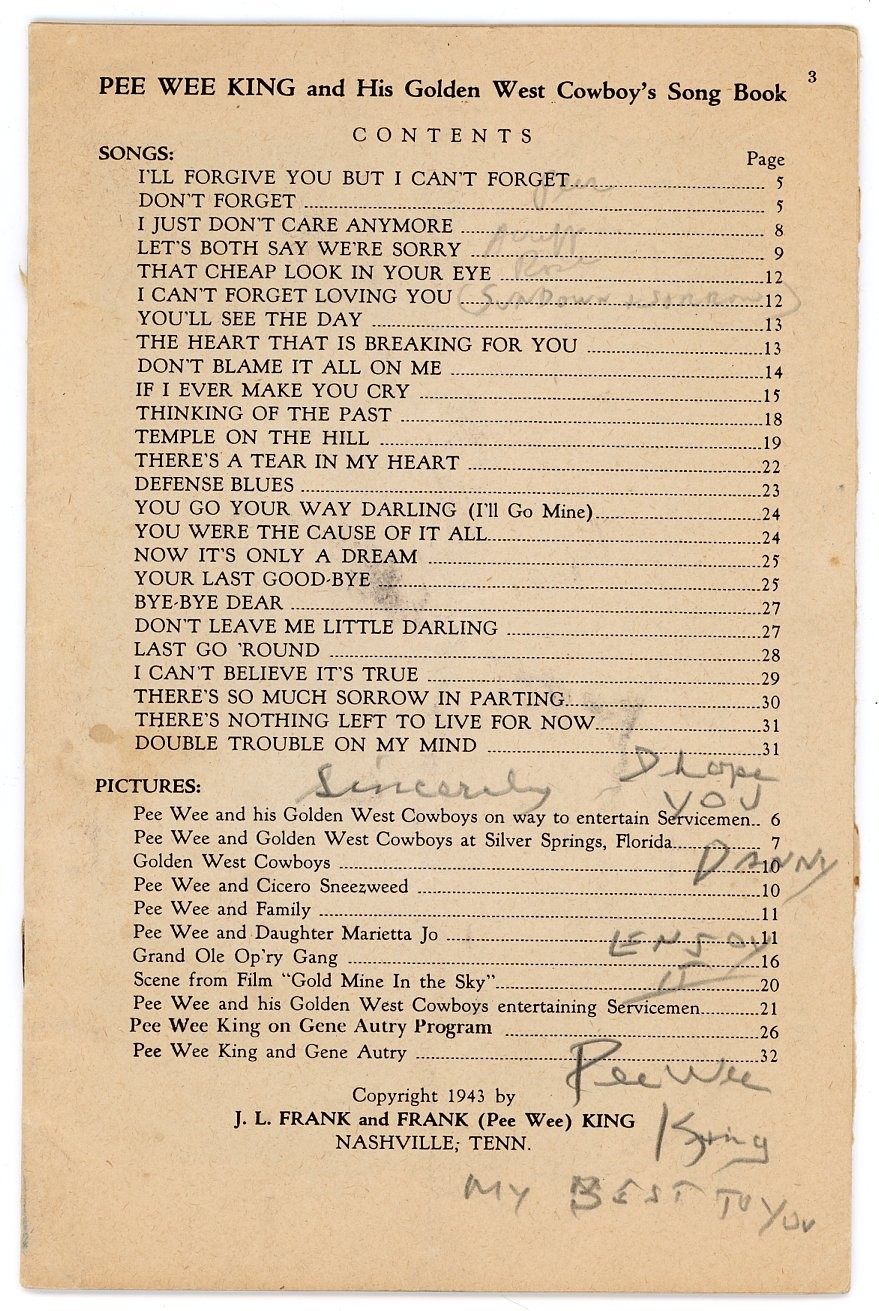 3
PEE WEE KING and His Golden West Cowboy's Song Book
CONTENTS
SONGS:
Page
I'LL FORGIVE YOU BUT I CAN'T FORGET 5
DON'T FORGET 5
I JUST DON'T CARE ANYMORE 8
LET'S BOTH SAY WE'RE SORRY 9
Rose
THAT CHEAP LOOK IN YOUR EYE 12
I CAN'T FORGET LOVING YOU 12
(SunDown & Sorrow)
YOU'LL SEE THE DAY 13
THE HEART THAT IS BREAKING FOR YOU 13
DON'T BLAME IT ALL ON ME 14
IF I EVER MAKE YOU CRY 15
THINKING OF THE PAST 18
TEMPLE ON THE HILL 19
THERE'S A TEAR IN MY HEART 22
DEFENSE BLUES 23
YOU GO YOUR WAY DARLING (I'll Go Mine) 24
YOU WERE THE CAUSE OF IT ALL 24
NOW IT'S ONLY A DREAM 25
YOUR LAST GOOD-BYE 25
BYE-BYE DEAR 27
DON'T LEAVE ME LITTLE DARLING 27
LAST GO 'ROUND 28
I CAN'T BELIEVE IT'S TRUE 29
THERE'S SO MUCH SORROW IN PARTING 30
THERE'S NOTHING LEFT TO LIVE FOR NOW 31
DOUBLE TROUBLE ON MY MIND 31
I hope
Sincerely
YOU
PICTURES:
Pee Wee and his Golden West Cowboys on way to entertain Servicemen 6
Pee Wee and Golden West Cowboys at Silver Springs, Florida 7
DANNY
Golden West Cowboys 10
Pee Wee and Cicero Sneezweed 10
Pee Wee and Family 11
Pee Wee and Daughter Marietta Jo 11
ENJOY
Grand Ole Op'ry Gang 16
IT
Scene from Film "Gold Mine In the Sky" 20
Pee Wee and his Golden West Cowboys entertaining Servicemen 21
Pee Wee King on Gene Autry Program 26
Pee Wee King and Gene Autry 32
Pee Wee
King
Copyright 1943 by
J. L. FRANK and FRANK (Pee Wee) KING
NASHVILLE, TENN.
MY BEST TO YOU